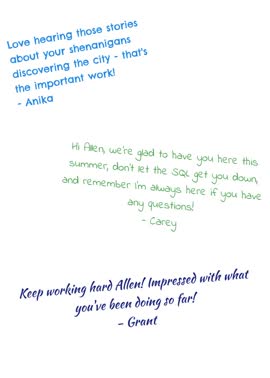 Love hearing those stories
about your shenanigans
discovering the city - that's
the important work!
- Anika
Hi Allen, we're glad to have you here this
summer, don't let the SQL get you down,
and remember I'm always here if you have
any questions!
- Carey
Keep working hard Allen! Impressed with what
you've been doing so far!
- Grant